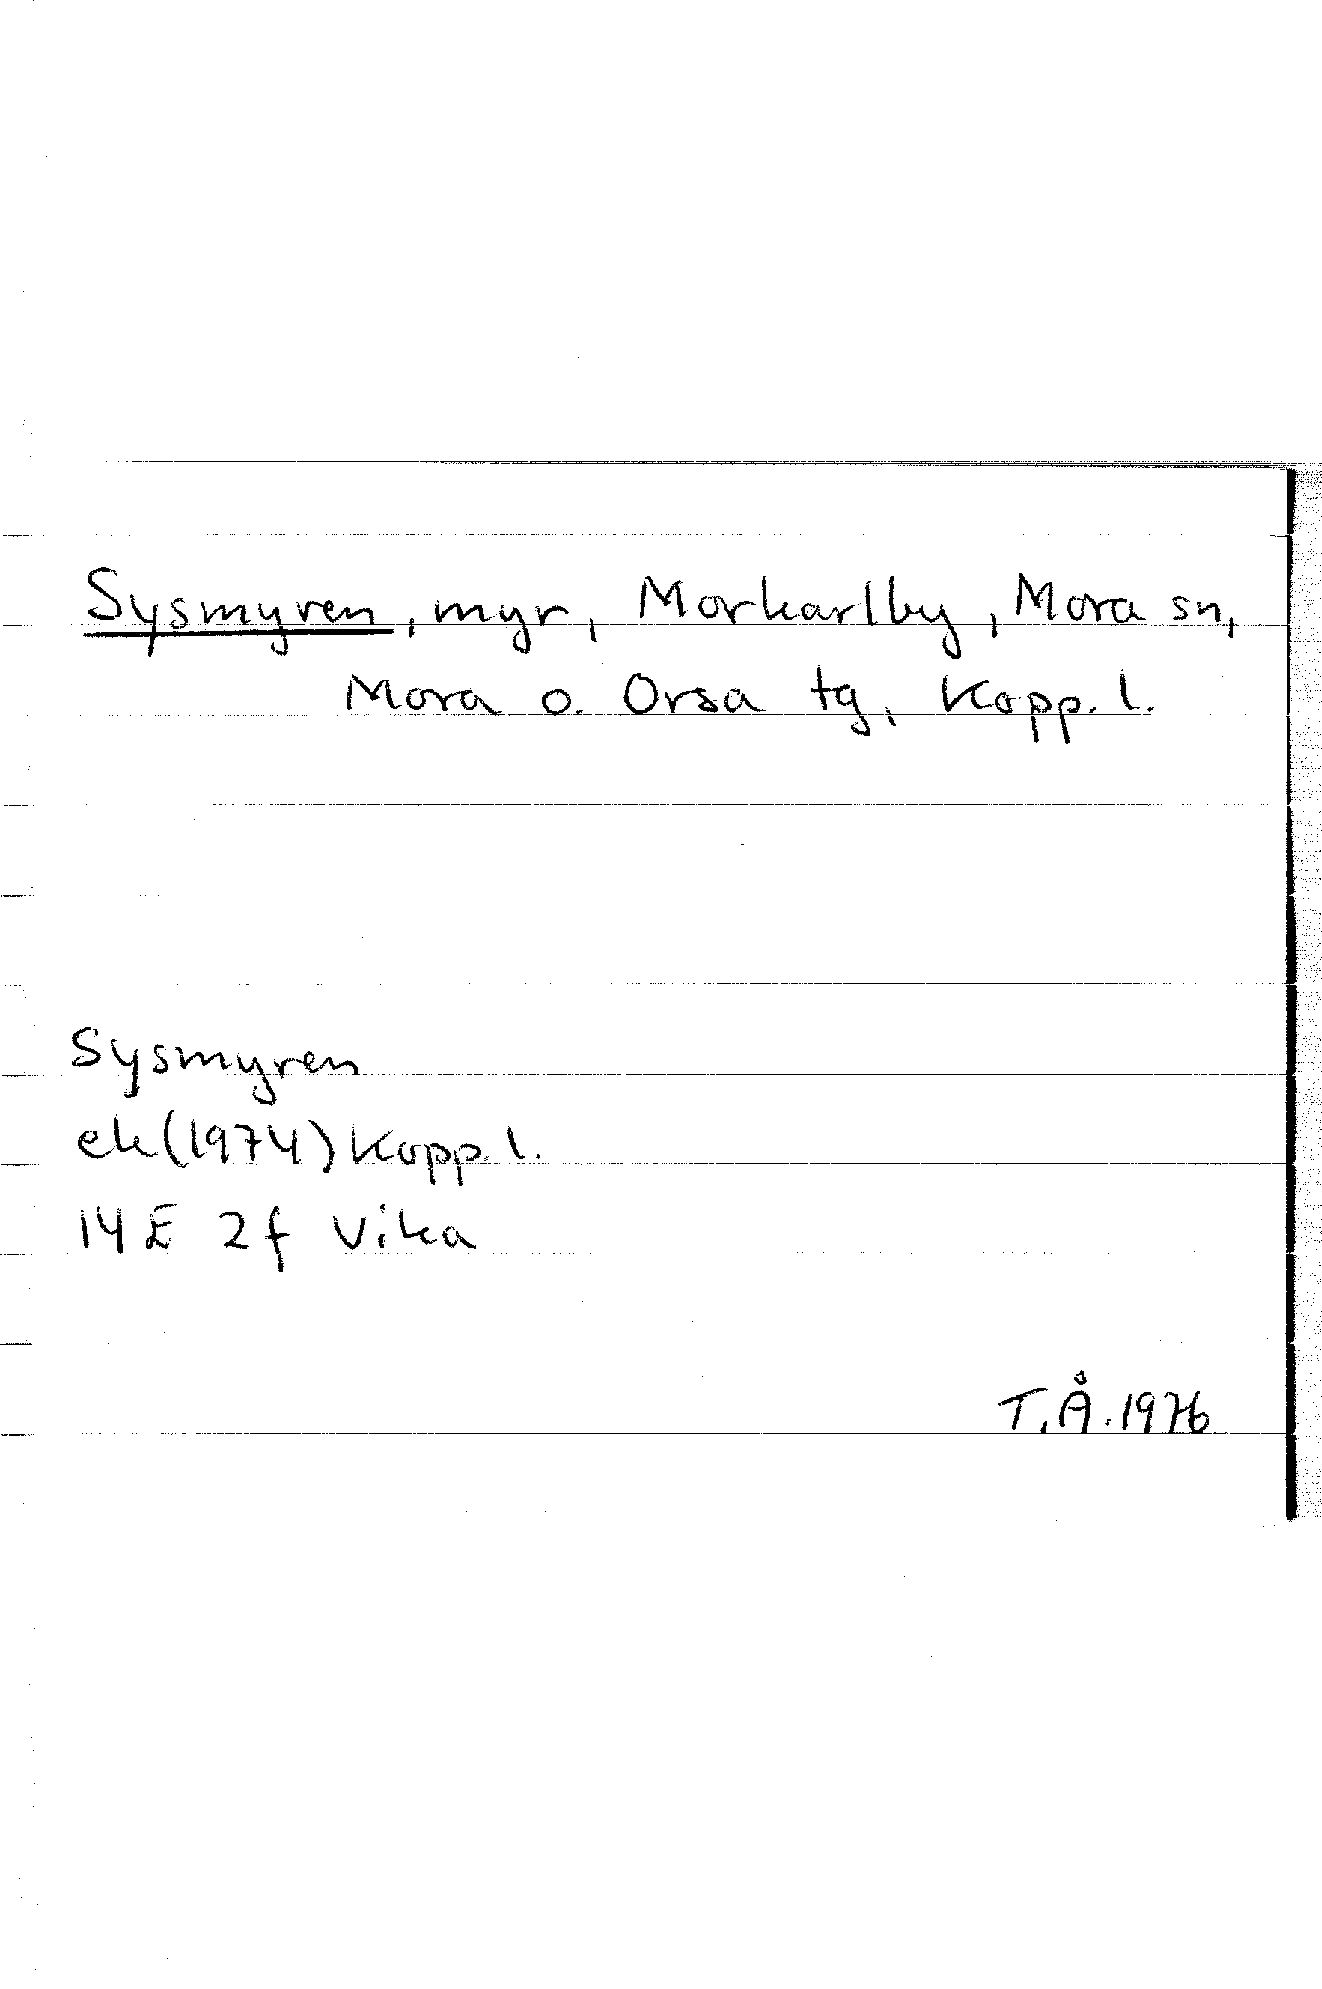 Sysmyren, myr, Morkarlby, Mora sn,
Mora o. Orsa tg, Kopp. l.
Sysmyren
ek(1974) Kopp. l.
14E 2f Vika
T.Å. 1976